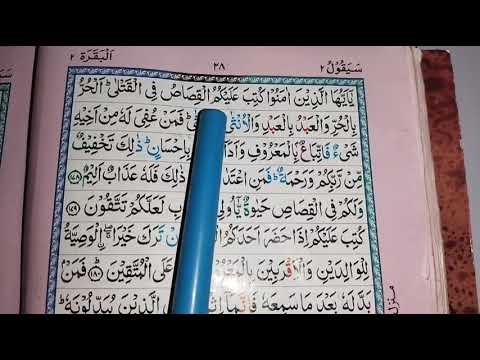 اَلْبَقَرَة ٢
٣٨
سَيَقُوْلُ ٢
يٰۤاَيُّهَا الَّذِيْنَ اٰمَنُوْا كُتِبَ عَلَيْكُمُ الْقِصَاصُ فِي الْقَتْلٰى ؕ اَلْحُرُّ
بِالْحُرِّ وَالْعَبْدُ بِالْعَبْدِ وَالْاُنْثٰى فَمَنْ عُفِيَ لَهٗ مِنْ اَخِيْهِ
شَيْءٌ فَاتِّبَاعٌۢ بِالْمَعْرُوْفِ وَاَدَآءٌ بِاِحْسَانٍ ؕ ذٰلِكَ تَخْفِيْفٌ
مِّنْ رَّبِّكُمْ وَرَحْمَةٌ ؕ فَمَنِ اعْتَدٰى ذٰلِكَ فَلَهٗ عَذَابٌ اَلِيْمٌ ﴿۱۷۸﴾
وَلَكُمْ فِي الْقِصَاصِ حَيٰوةٌ يّٰۤاُولِي لَعَلَّكُمْ تَتَّقُوْنَ ﴿۱۷۹﴾
كُتِبَ عَلَيْكُمْ اِذَا حَضَرَ اَحَدَكُمُ تَرَكَ خَيْرًا ۖۚ اۨلْوَصِيَّةُ
لِلْوَالِدَيْنِ وَالْاَقْرَبِيْنَ بِالْمَعْرُوْفِ عَلَى الْمُتَّقِيْنَ ﴿۱۸۰﴾ فَمَنْۢ
بَدَّلَهٗ بَعْدَ مَا سَمِعَهٗ فَاِنَّمَاۤ اِثْمُهٗ الَّذِيْنَ يُبَدِّلُوْنَهٗ ؕ